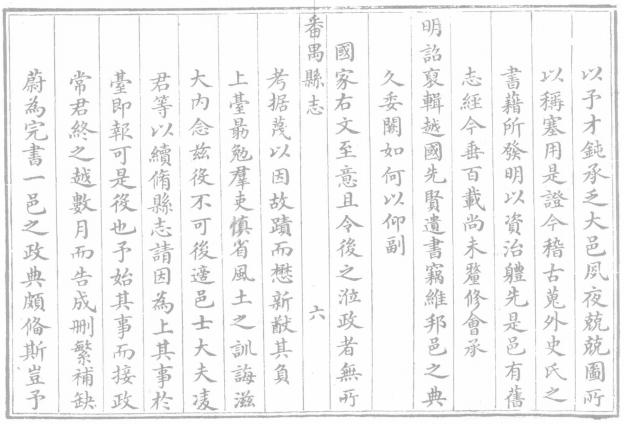 以予才鈍承乏大邑夙夜兢兢圖所
以稱塞用是證今稽古蒐外史氏之
書藉所發明以資治軆先是邑有舊
志經今垂百載尚未釐修會承
明詔裒輯越國先賢遺書竊維邦邑之典
久委闕如何以仰副
國家右文至意且令後之涖政者無所
番禺縣志 六
考据蔑以因故蹟而懋新猷其負
上臺朂勉羣吏慎省風土之訓誨滋
大內念茲役不可後適邑士大夫凌
君等以續脩縣志請因為上其事於
臺即報可是役也予始其事而接政
常君終之越數月而告成刪繁補缺
蔚為完書一邑之政典頗俻斯豈予